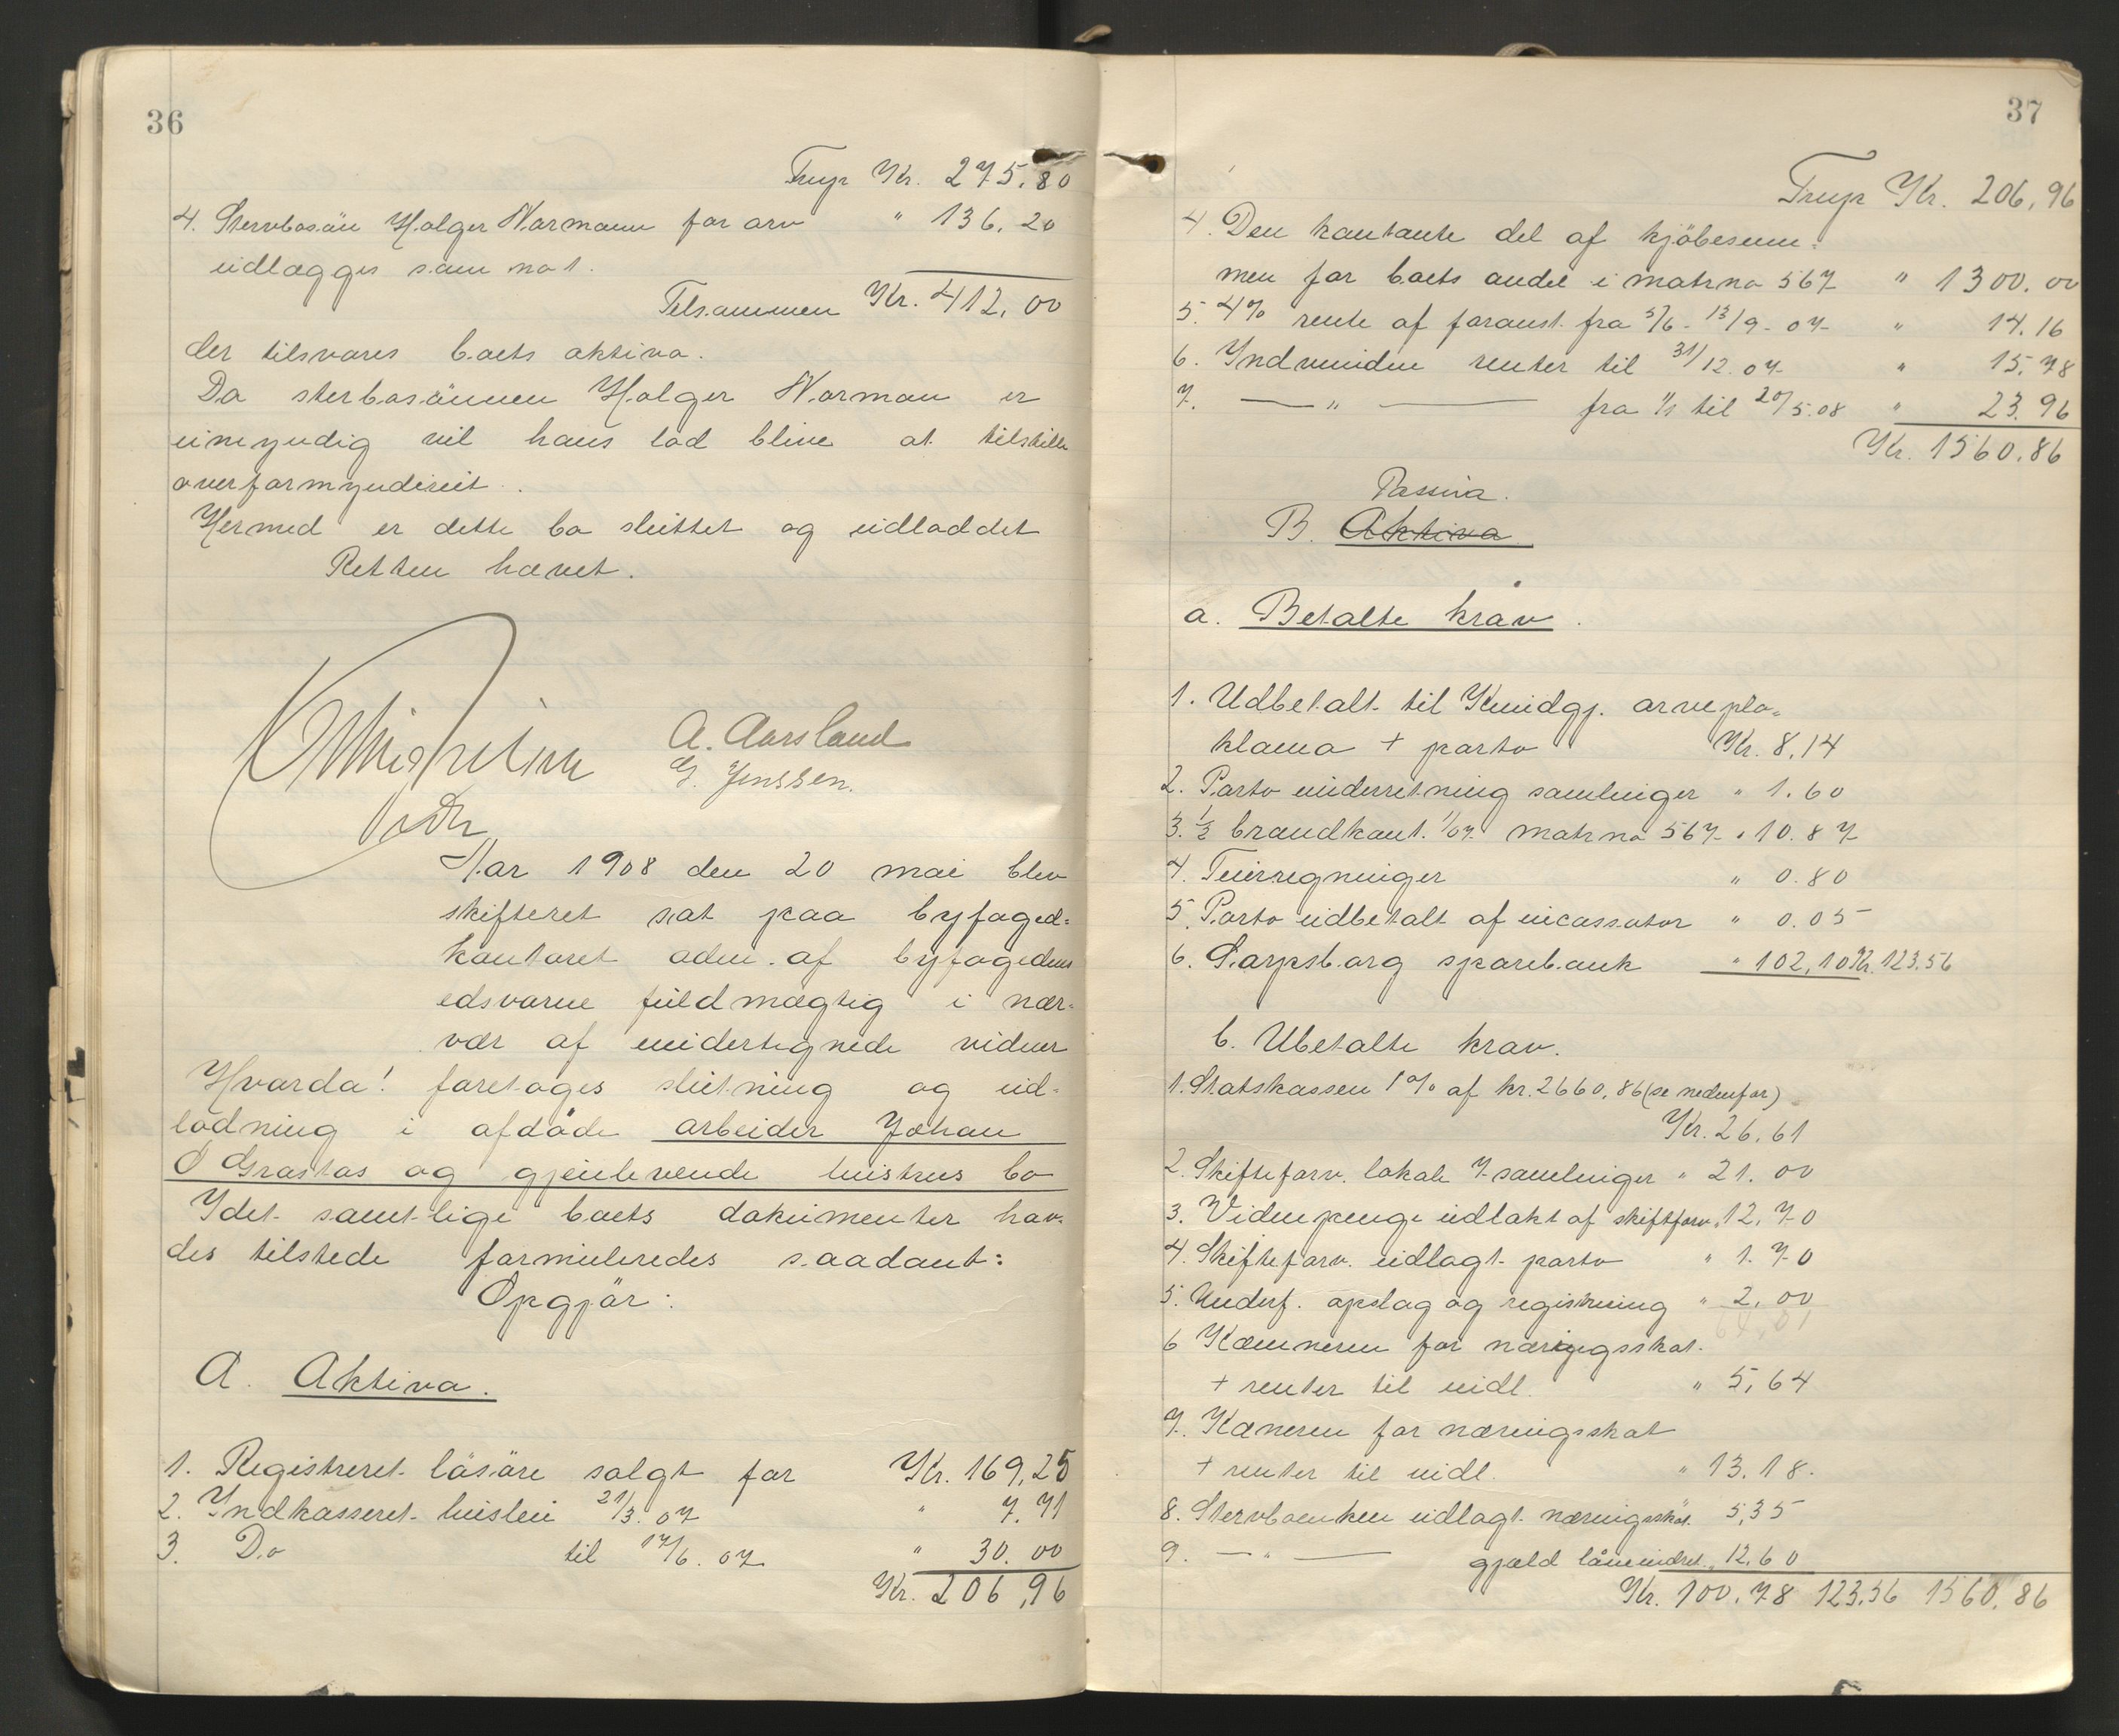 36
Trspr Kr. 275.80
4. Stervbosön Holger Normann for arv " 136.20
udlægges som no 1.
Tilsammen Kr. 412,00
der tilsvarer boets aktiva.
Da sterbosönnen Holger Norman er
umyndig vil hans lod blive at tilstille
overformynderiet.
Hermed er dette bo sluttet og udloddet
Retten hævet.
A. Aarsland
G. Jenssen.
Aar 1908 den 20 mai blev
skifteret sat paa byfoged=
kontoret adm. af byfogedens
edsvorne fuldmægtig i nær=
vær af undertegnede vidner
Hvorda! foretoges slutning og ud=
lodning i afdöde arbeider Johan
O Grastos og gjenlevende hustrus bo
Idet samtlige boets dokumenter hav=
des tilstede formuleredes saadant:
Opgjör:
A. Aktiva.
1. Registreret lösöre solgt for Kr. 169,25
2. Indkasseret husleie 21/3. 07 " 7.71
3. Do til 17/6. 07 " 30.00
Kr. 206,96
37
Trspr Kr. 206,96
4. Den kontante del af kjöbesum=
men for boets andel i matrno 567 " 1300.00
5. 4% rente af foranst. fra 5/6 - 13/9 - 07 " 14.16
6. Indvundne renter til 31/12.07 " 15.78
7. — " — fra 1/1 til 20/5.08 " 23.96
Kr. 1560.86
Passiva.
B. Aktiva
a. Betalte krav.
1. Udbetalt til Kundgj. arvepro=
klama + porto Kr. 8,14
2. Porto underretning samlinger " 1.60
3. 1/2 brandkont. 1/07 matrno 567 " 10.87
4. Tinregninger " 0.80
5. Porto udbetalt af incassator " 0.05
6. Sarpsborg sparebank " 102,10 Kr. 123.56
b. Ubetalte krav.
1. Statskassen 1% af kr. 2660,86 (se nedenfor)
Kr. 26,61
2. Skifteforv. lokale 7 samlinger " 21.00
3. Vidnepenge udlakt af skiftforv. " 12.70
4. Skifteforv. udlagt porto " 1.70
5. Underf. opslag og registrering " 2.00
6 Kæmneren for næringsskat
+ renter til uidl. " 5,64
7. Kæneren for næringsskat
+ renter til uidl. " 13.18.
8. Stervboenken udlagt næringsskat 5,35
9. — " — gjæld låneindret. " 12.60
Kr. 100.78 123.56 1560.86